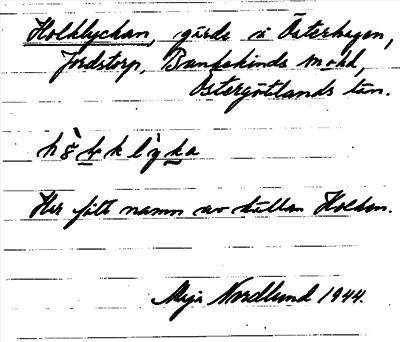 Holklyckan, gärde i Österhagen,
Jordstorp, Bankekinds mskd,
Östergötlands län.
Har fått namn av källan Holken.
Maja Nordlund 1944.